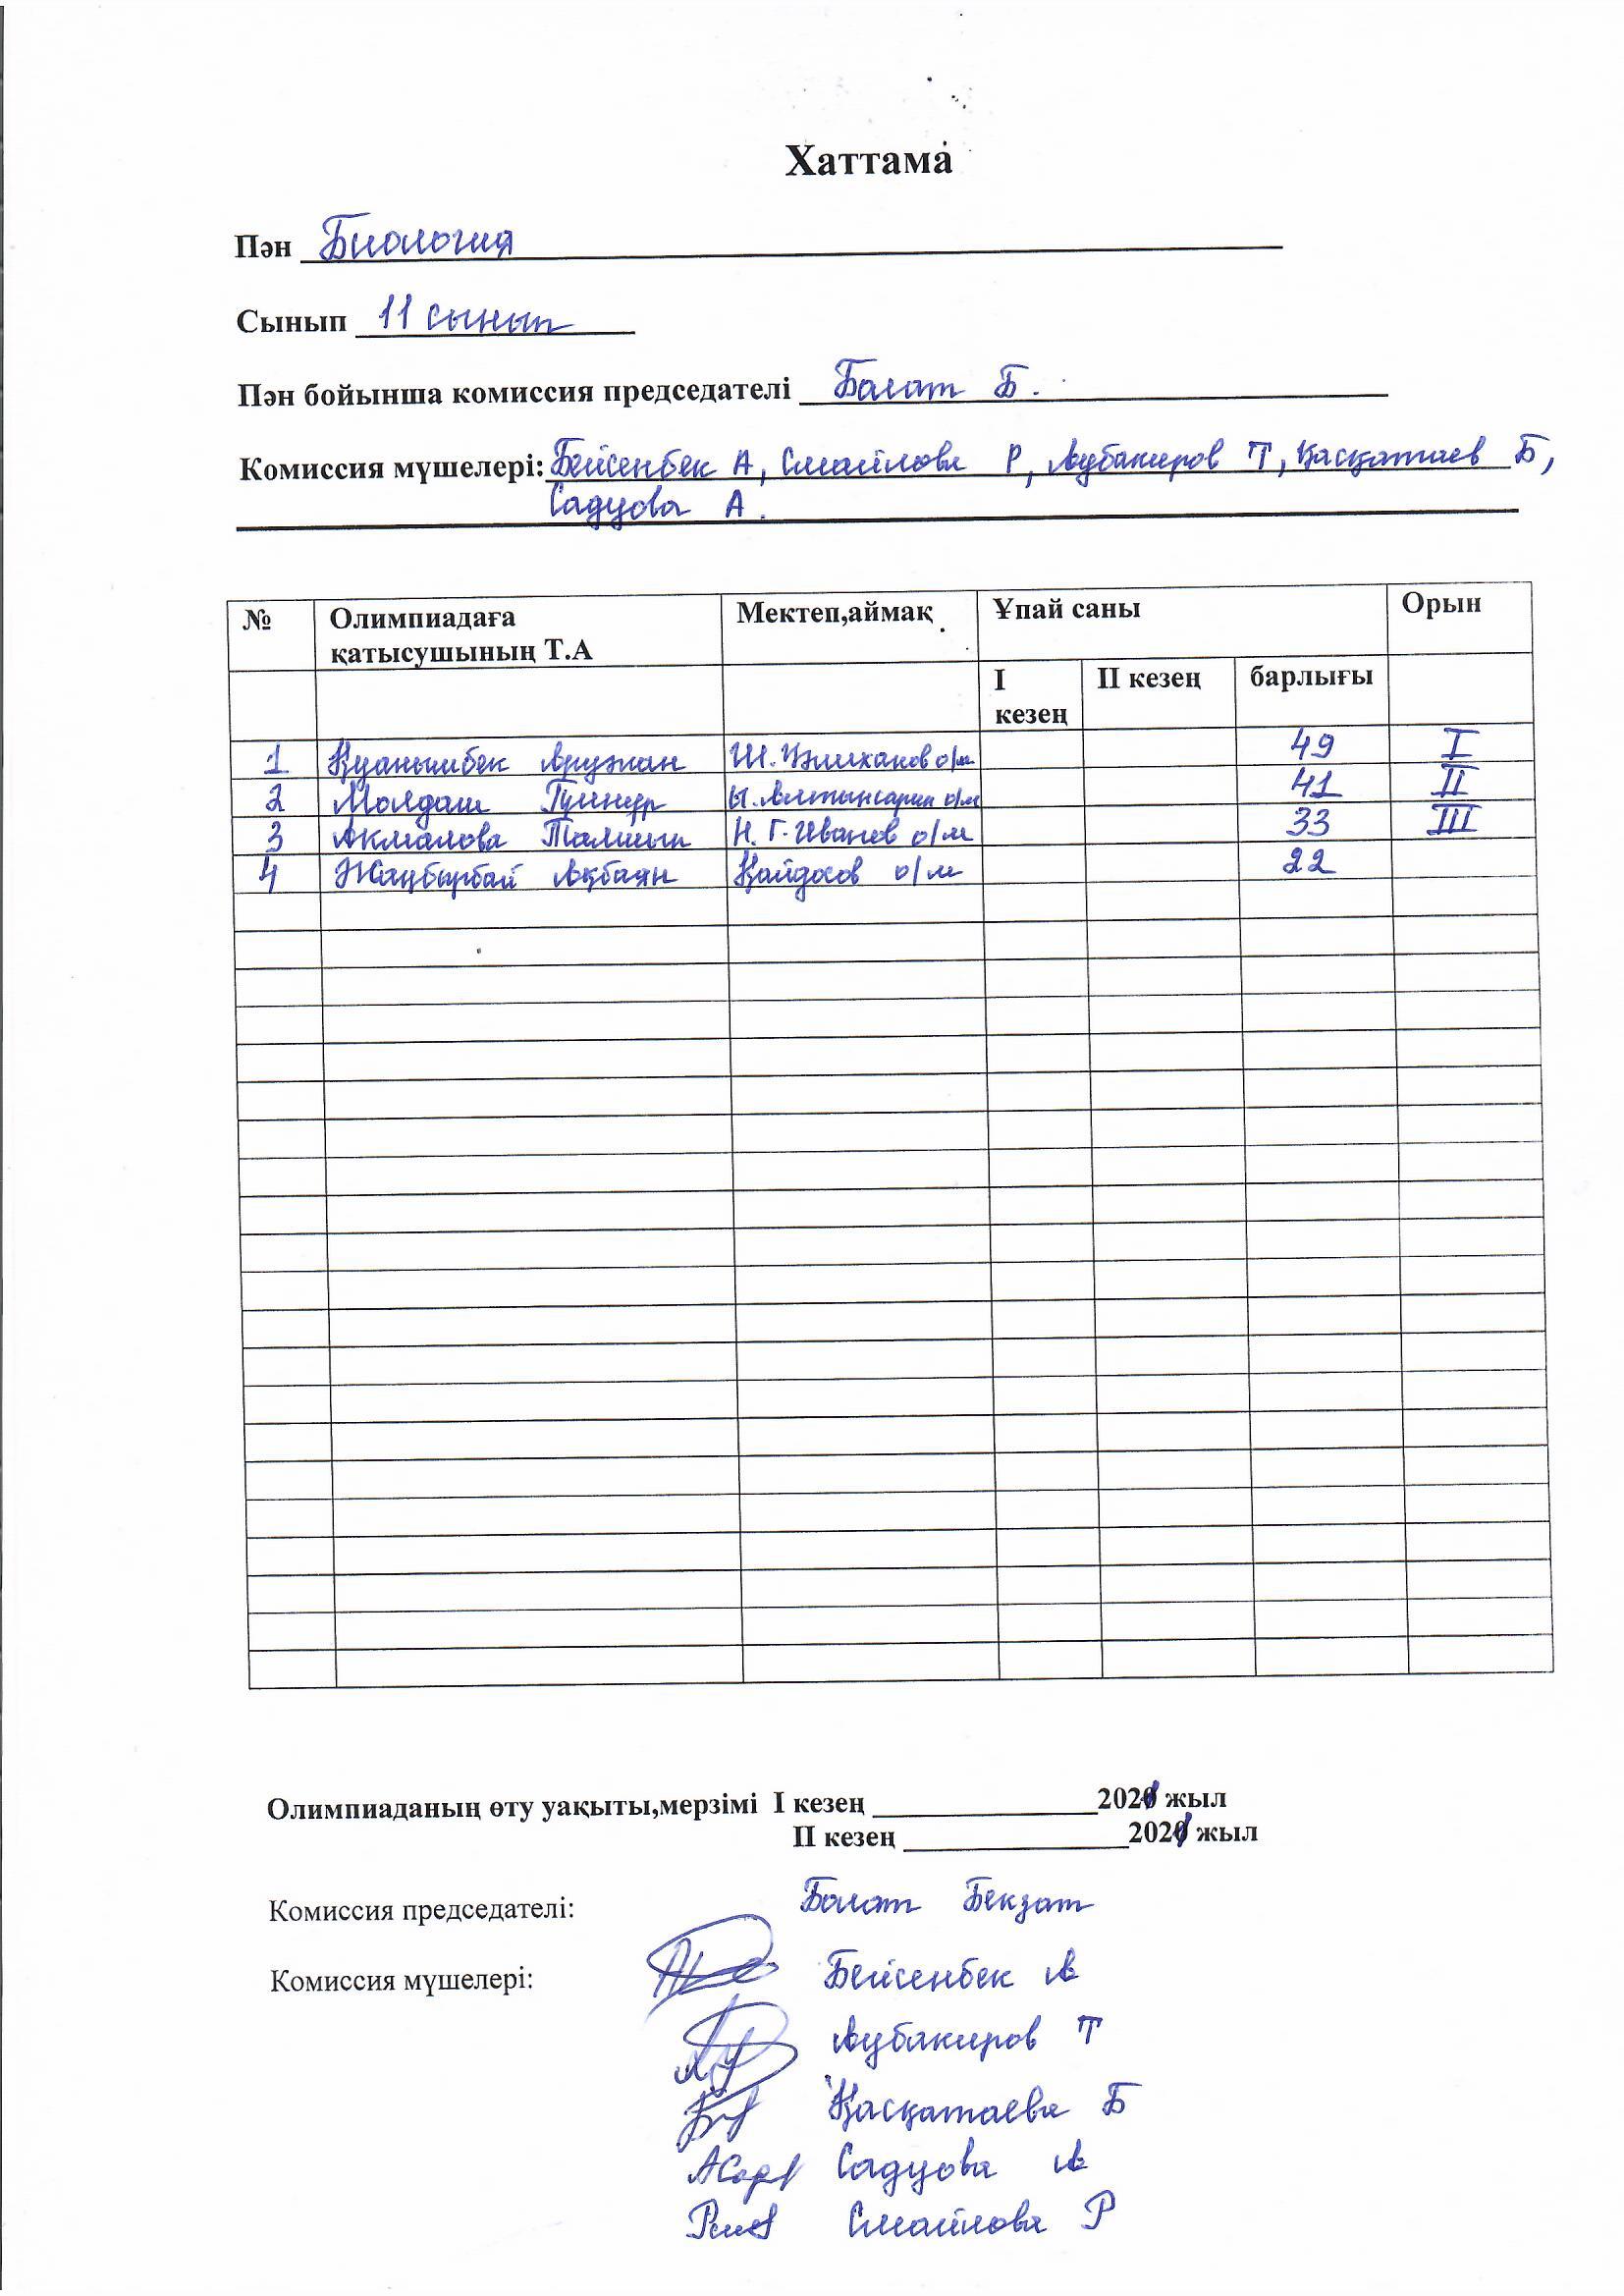 Хаттама
Пән Биология
Сынып 11 сынып
Пән бойынша комиссия председателі Болат Б.
Комиссия мүшелері: Бейсенбек А, Смайлова Р, Аубакиров Т, Қасқатаев Б,
Садуова А.
№ Олимпиадаға қатысушының Т.А Мектеп,аймақ Ұпай саны Орын
І кезең ІІ кезең барлығы
1 Қуанышбек Аружан Ш. Уәлиханов о/м 49 I
2 Молдаш Гүлнұр Ы. Алтынсарин о/м 41 II
3 Акмалова Толқын Н. Г. Иванов о/м 33 III
4 Жаубырбай Ақбаян Қайдосов о/м 22
Олимпиаданың өту уақыты,мерзімі І кезең 2021 жыл
ІІ кезең 2021 жыл
Комиссия председателі: Болат Бекзат
Комиссия мүшелері: Бейсенбек А
Аубакиров Т
Қасқатаева Б
Садуова А
Смайлова Р